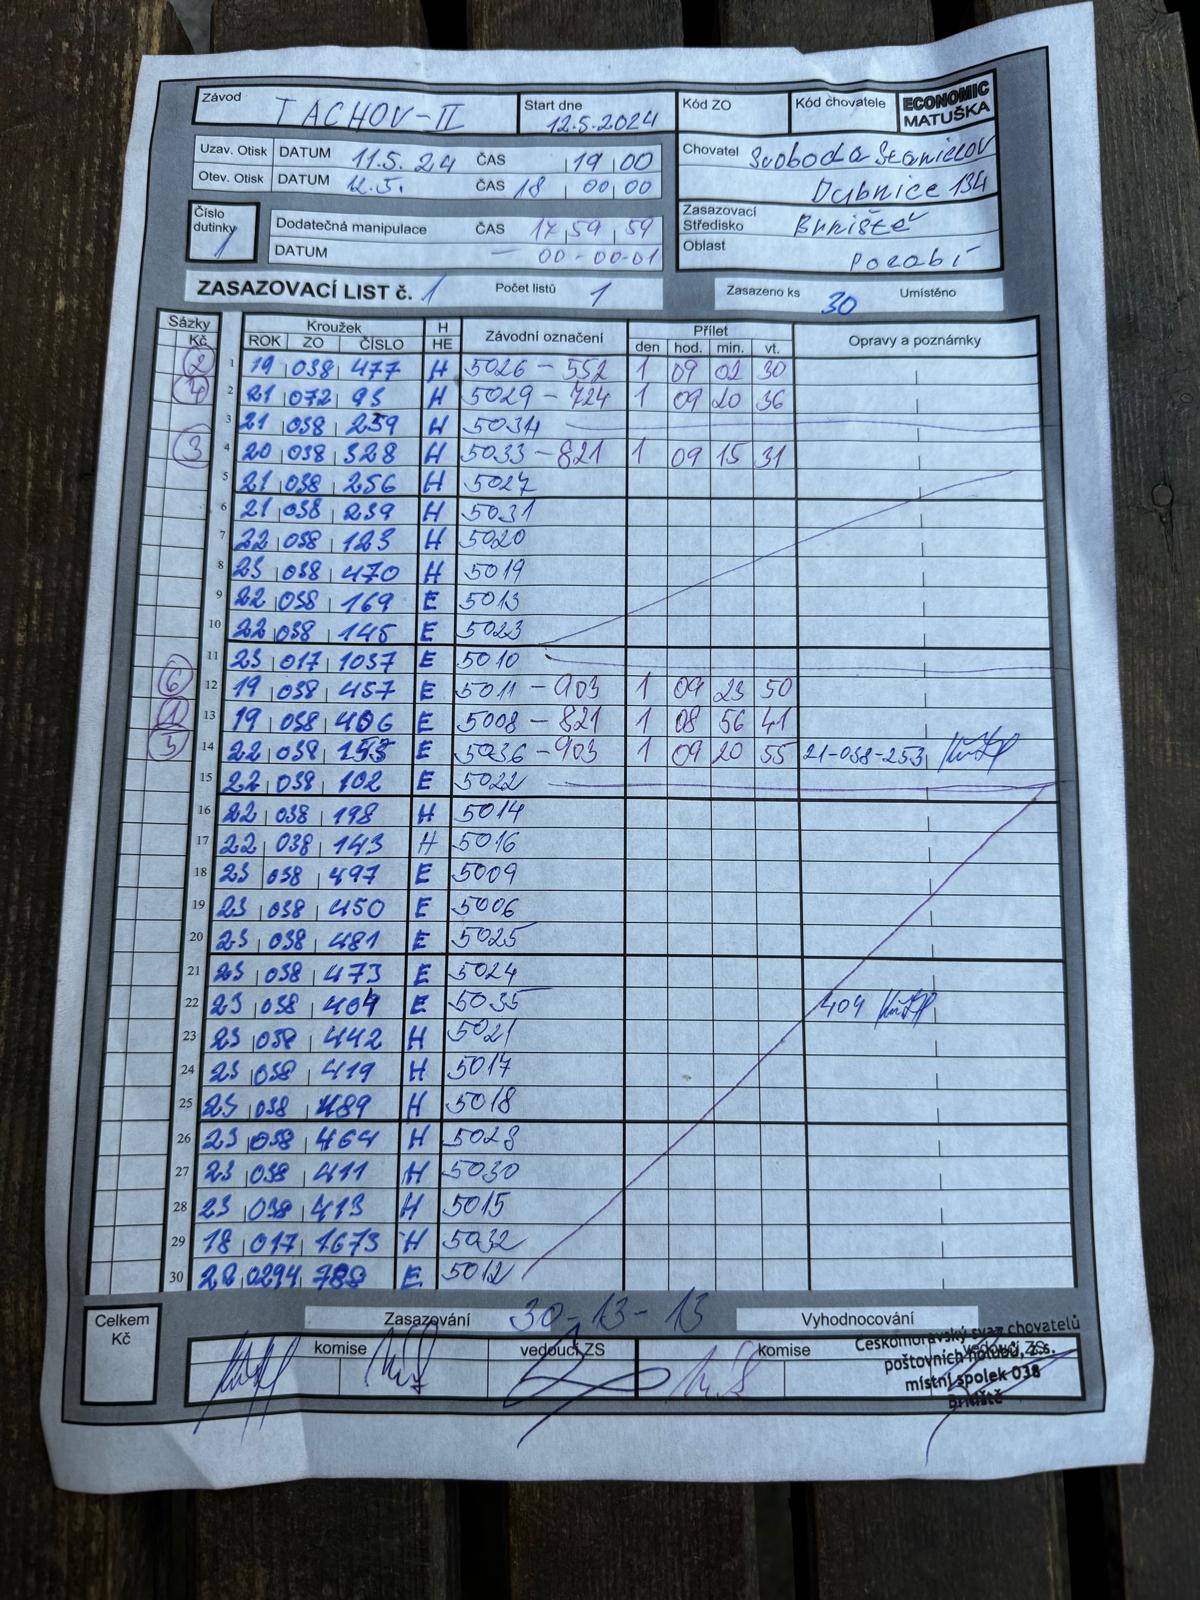 Závod TACHOV-II Start dne 12.5.2024 Kód ZO Kód chovatele ECONOMIC MATUŠKA
Uzav. Otisk DATUM 11.5.24 ČAS 19 00
Otev. Otisk DATUM 12.5. ČAS 18 00 00
Chovatel Svoboda
Dubnice 134
Číslo dutinky 1
Dodatečná manipulace ČAS 17 59 59
DATUM — 00-00-01
Zasazovací Středisko Brniště
Oblast Polabí
ZASAZOVACÍ LIST č. 1 Počet listů 1 Zasazeno ks 30 Umístěno
Sázky Kč Kroužek H Závodní označení Přílet Opravy a poznámky
ROK ZO ČÍSLO HE den hod. min. vt.
2 1 19 038 477 H 5026 - 552 1 09 02 30
4 2 21 072 93 H 5029 - 724 1 09 20 36
3 21 038 259 H 5034
3 4 20 038 328 H 5033 - 821 1 09 15 31
5 21 038 256 H 5027
6 21 038 239 H 5031
7 22 038 123 H 5020
8 23 038 470 H 5019
9 22 038 169 E 5013
10 22 038 145 E 5023
11 23 017 1037 E 5010
6 12 19 038 457 E 5011 - 903 1 09 23 50
1 13 19 038 406 E 5008 - 821 1 08 56 41
5 14 22 038 153 E 5036 - 903 1 09 20 55 21-038-253
15 22 038 102 E 5022
16 22 038 198 H 5014
17 22 038 143 H 5016
18 23 038 497 E 5009
19 23 038 450 E 5006
20 23 038 481 E 5025
21 23 038 473 E 5024
22 23 038 404 E 5035 409
23 23 038 442 H 5021
24 23 038 419 H 5017
25 23 038 489 H 5018
26 23 038 464 H 5028
27 23 038 411 H 5030
28 23 038 413 H 5015
29 18 017 1673 H 5032
30 22 0294 E 5012
Celkem Kč
Zasazování 30-13-13 Vyhodnocování
komise vedoucí ZS komise vedoucí ZS
Českomoravský svaz chovatelů
poštovních holubů, z.s.
místní spolek 038
Brniště